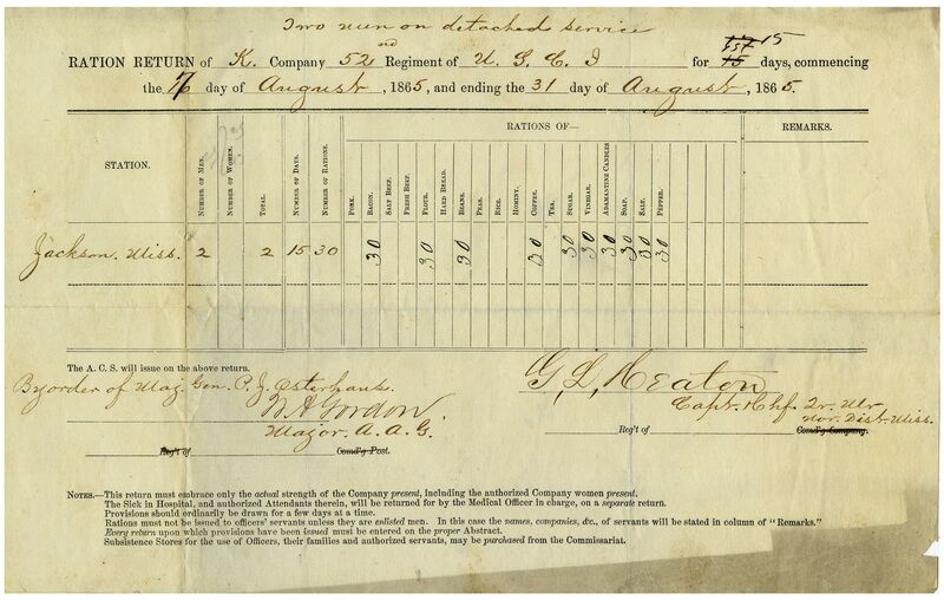 Two men on detached service
RATION RETURN of K. Company 52nd Regiment of U. S. C. I for 15 days, commencing
the 17 day of August, 1865, and ending the 31 day of August, 1865.
STATION.
NUMBER OF MEN.
NUMBER OF WOMEN.
TOTAL.
NUMBER OF DAYS.
NUMBER OF RATIONS.
RATIONS OF—
PORK.
BACON.
SALT BEEF.
FRESH BEEF.
FLOUR.
HARD BREAD.
BEANS.
PEAS.
RICE.
HOMINY.
COFFEE.
TEA.
SUGAR.
VINEGAR.
ADAMANTINE CANDLES
SOAP.
SALT.
PEPPER.
REMARKS.
Jackson. Miss. 2 2 15 30 30 30 30 30 30 30 30 30 30 30
The A. C. S. will issue on the above return.
By order of Maj. Gen. P. J. Osterhaus.
W A Gordon.
Major. A. A. G.
Reg't of Comd'g Post.
G, L, Heaton
Capt. & Chf. Qr. Mr.
Reg't of Nor. Dist. Miss.
Comd'g Company.
NOTES.—This return must embrace only the actual strength of the Company present, including the authorized Company women present.
The Sick in Hospital, and authorized Attendants therein, will be returned for by the Medical Officer in charge, on a separate return.
Provisions should ordinarily be drawn for a few days at a time.
Rations must not be issued to officers' servants unless they are enlisted men. In this case the names, companies, &c., of servants will be stated in column of "Remarks."
Every return upon which provisions have been issued must be entered on the proper Abstract.
Subsistence Stores for the use of Officers, their families and authorized servants, may be purchased from the Commissariat.